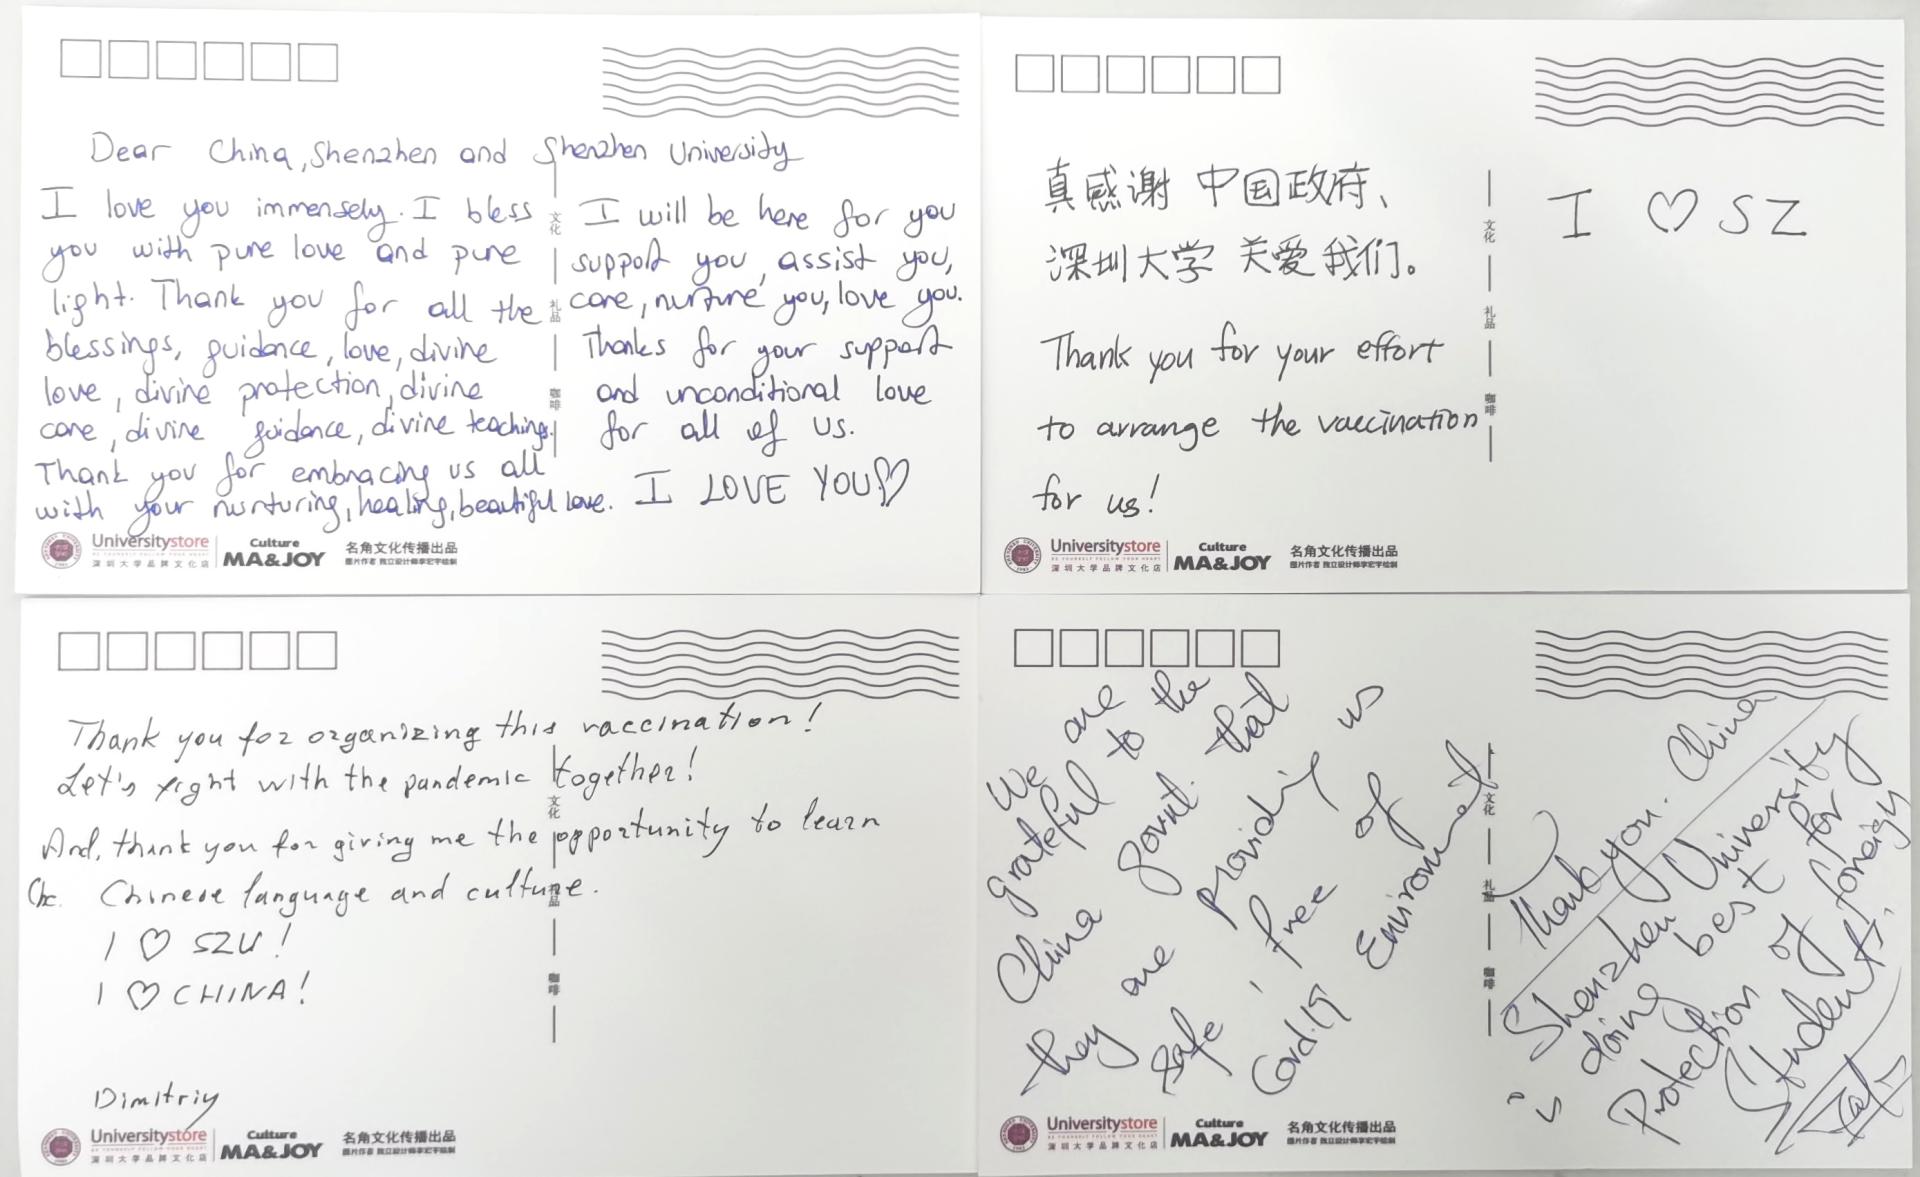 Dear China, Shenzhen and Shenzhen University
I love you immensely. I bless
you with pure love and pure
light. Thank you for all the
blessings, guidance, love, divine
love, divine protection, divine
care, divine guidance, divine teachings.
Thank you for embracing us all
with your nurturing, healing, beautiful love.
I will be here for you
support you, assist you,
care, nurture you, love you.
Thanks for your support
and unconditional love
for all of us.
I LOVE YOU♡
文化
礼品
咖啡
Universitystore
BE YOURSELF FOLLOW YOUR HEART
深圳大学品牌文化店
Culture
MA&JOY
名角文化传播出品
图片作者 独立设计师李宏宇绘制
真感谢 中国政府、
深圳大学 关爱我们。
Thank you for your effort
to arrange the vaccination
for us!
I ♡ SZ
文化
礼品
咖啡
Universitystore
BE YOURSELF FOLLOW YOUR HEART
深圳大学品牌文化店
Culture
MA&JOY
名角文化传播出品
图片作者 独立设计师李宏宇绘制
Thank you for organizing this vaccination!
Let's fight with the pandemic together!
And, thank you for giving me the opportunity to learn
Chinese language and culture.
I ♡ SZU!
I ♡ CHINA!
Dimitriy
文化
礼品
咖啡
Universitystore
BE YOURSELF FOLLOW YOUR HEART
深圳大学品牌文化店
Culture
MA&JOY
名角文化传播出品
图片作者 独立设计师李宏宇绘制
We are
grateful to the
China govnt. that
they are providing us
safe, free of
Covid.19 Environment
Thank you. China
Shenzhen University
is doing best for
Protection of foreign
Students.
文化
礼品
咖啡
Universitystore
BE YOURSELF FOLLOW YOUR HEART
深圳大学品牌文化店
Culture
MA&JOY
名角文化传播出品
图片作者 独立设计师李宏宇绘制